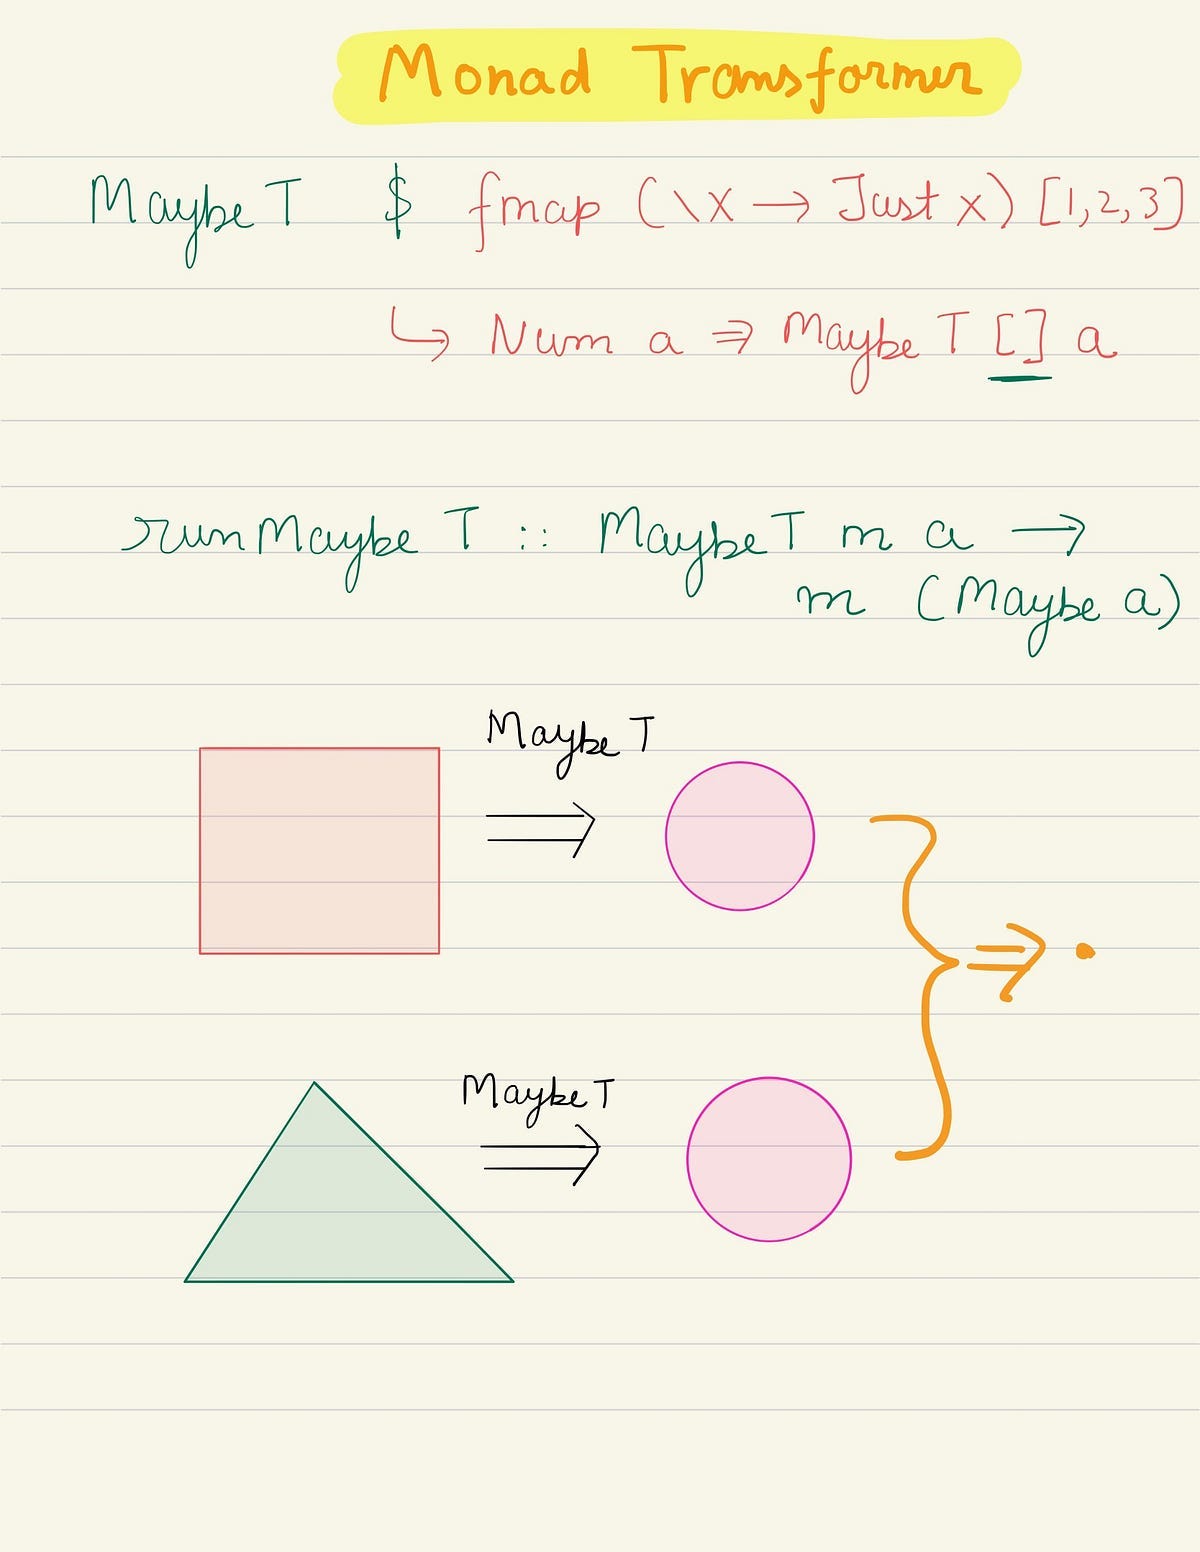 Monad Transformer
MaybeT $ fmap (\x → Just x) [1,2,3]
↳ Num a ⇒ MaybeT [] a
runMaybeT :: MaybeT m a →
m (Maybe a)
MaybeT
MaybeT